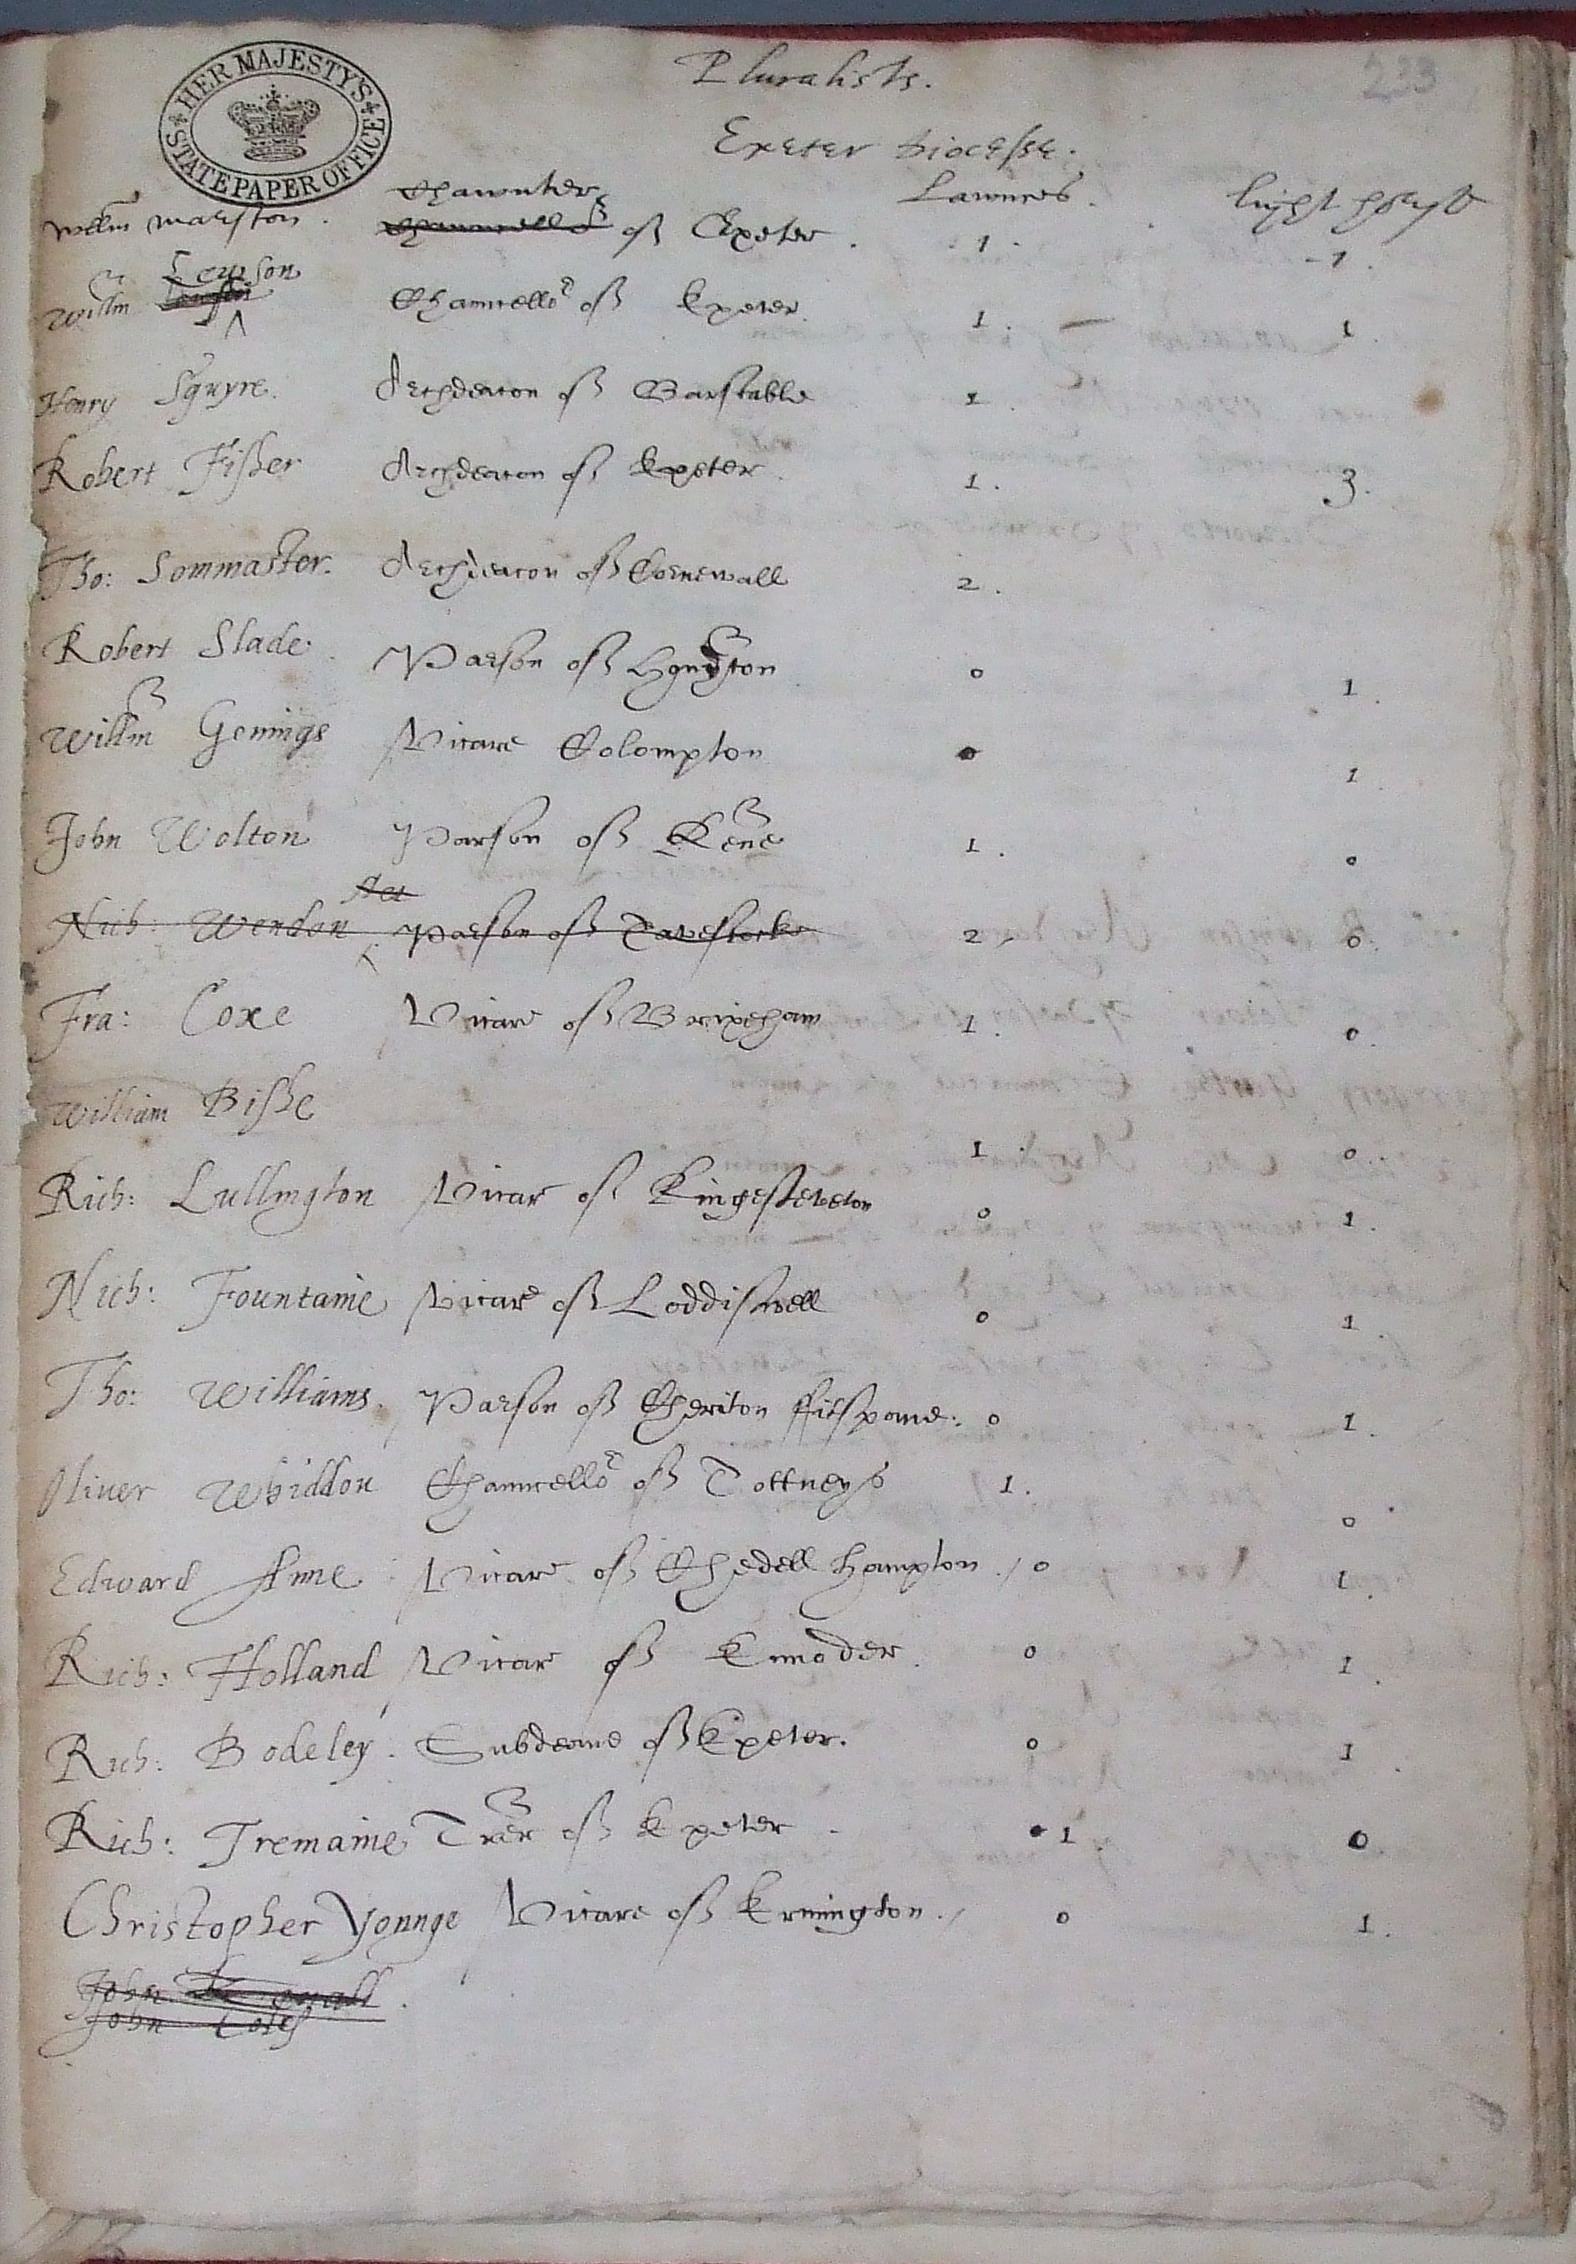 233
Pluralists.
HER MAJESTY'S STATE PAPER OFFICE
Exeter diocesse.
Chawnter Lawnces. light horse
Willm Marston. Chauncellor of Exeter. 1. 1.
Leweson
Willm Chauncellor of Exeter 1. 1.
Henry Squyre. Archdeacon of Barstable 1. 1.
Robert Fisher Archdeacon of Exeter. 1. 3.
Tho: Sommaster. Archdeacon of Cornewall 2.
Robert Slade. Parson of 0 1.
Willm Genings Vicare Colompton 0 1
John Wolton Parson of Kene 1. 0
Nich: Wendon Parson of Tavestocke 2 0.
Fra: Coxe Vicare of Brixeham 1. 0.
William Bishe 1. 0.
Rich: Lullington Vicar of Kingesteveton 0 1.
Nich: Fountaine Vicare of Loddiswell 0 1.
Tho: Williams. Parson of Cheriton ffitspaine. 0 1.
Oliver Whiddon Chauncellor of Tottneys 1. 0
Edward Anne Vicare of Chedell hampton. 0 1.
Rich: Holland Vicar of Exmoder. 0 1.
Rich: Bodeley. Subdeane of Exeter. 0 1.
Rich: Tremaine Trer of Exeter 1. 0
Christopher Yonnge Vicare of Ermington. 0 1.
John
John Coles